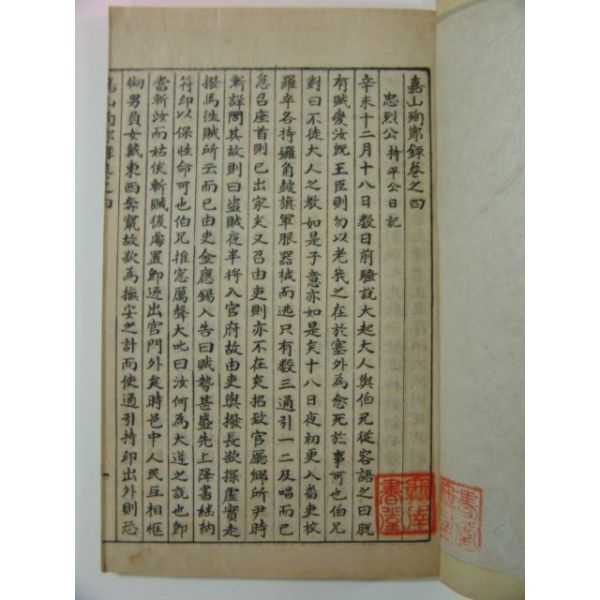 嘉山殉節錄卷之四
忠烈公持平公日記
辛未十二月十八日數日前騷說大起大人與伯兄從容語之曰脫
有賊變汝旣王臣則勿以老我之在於塞外爲念死於事可也伯兄
對曰不徒大人之敎如是子意亦如是矣十八日夜初更入番吏校
羅卒各持鑼角鼓旗軍服器械而逃只有數三通引一二及唱而已
急召座首則已出家矣又召由吏則亦不在矣招致官屬鄕所尹時
漸詳問其故則曰盜賊夜半將入官府故由吏與撥長欲探虛實走
撥馬徃賊所云而已由吏金應錫入告曰賊勢甚盛先上降書繼納
符印以保性命可也伯兄推窓厲聲大叱曰汝何爲大逆之說也卽
當斬汝而姑俟斬賊後處置卽逐出宮門外矣時邑中人民互相恇
㤼男負女戴東西奔竄故欲爲撫安之計而使通引持印出外則恐
嘉山殉節錄卷之四
書堂